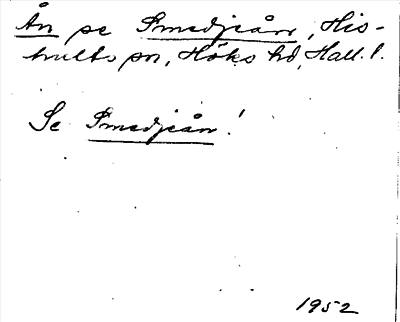 Ån se Smedjeån, His-
hults sn, Höks hd, Hall. l.
Se Smedjeån!
1952